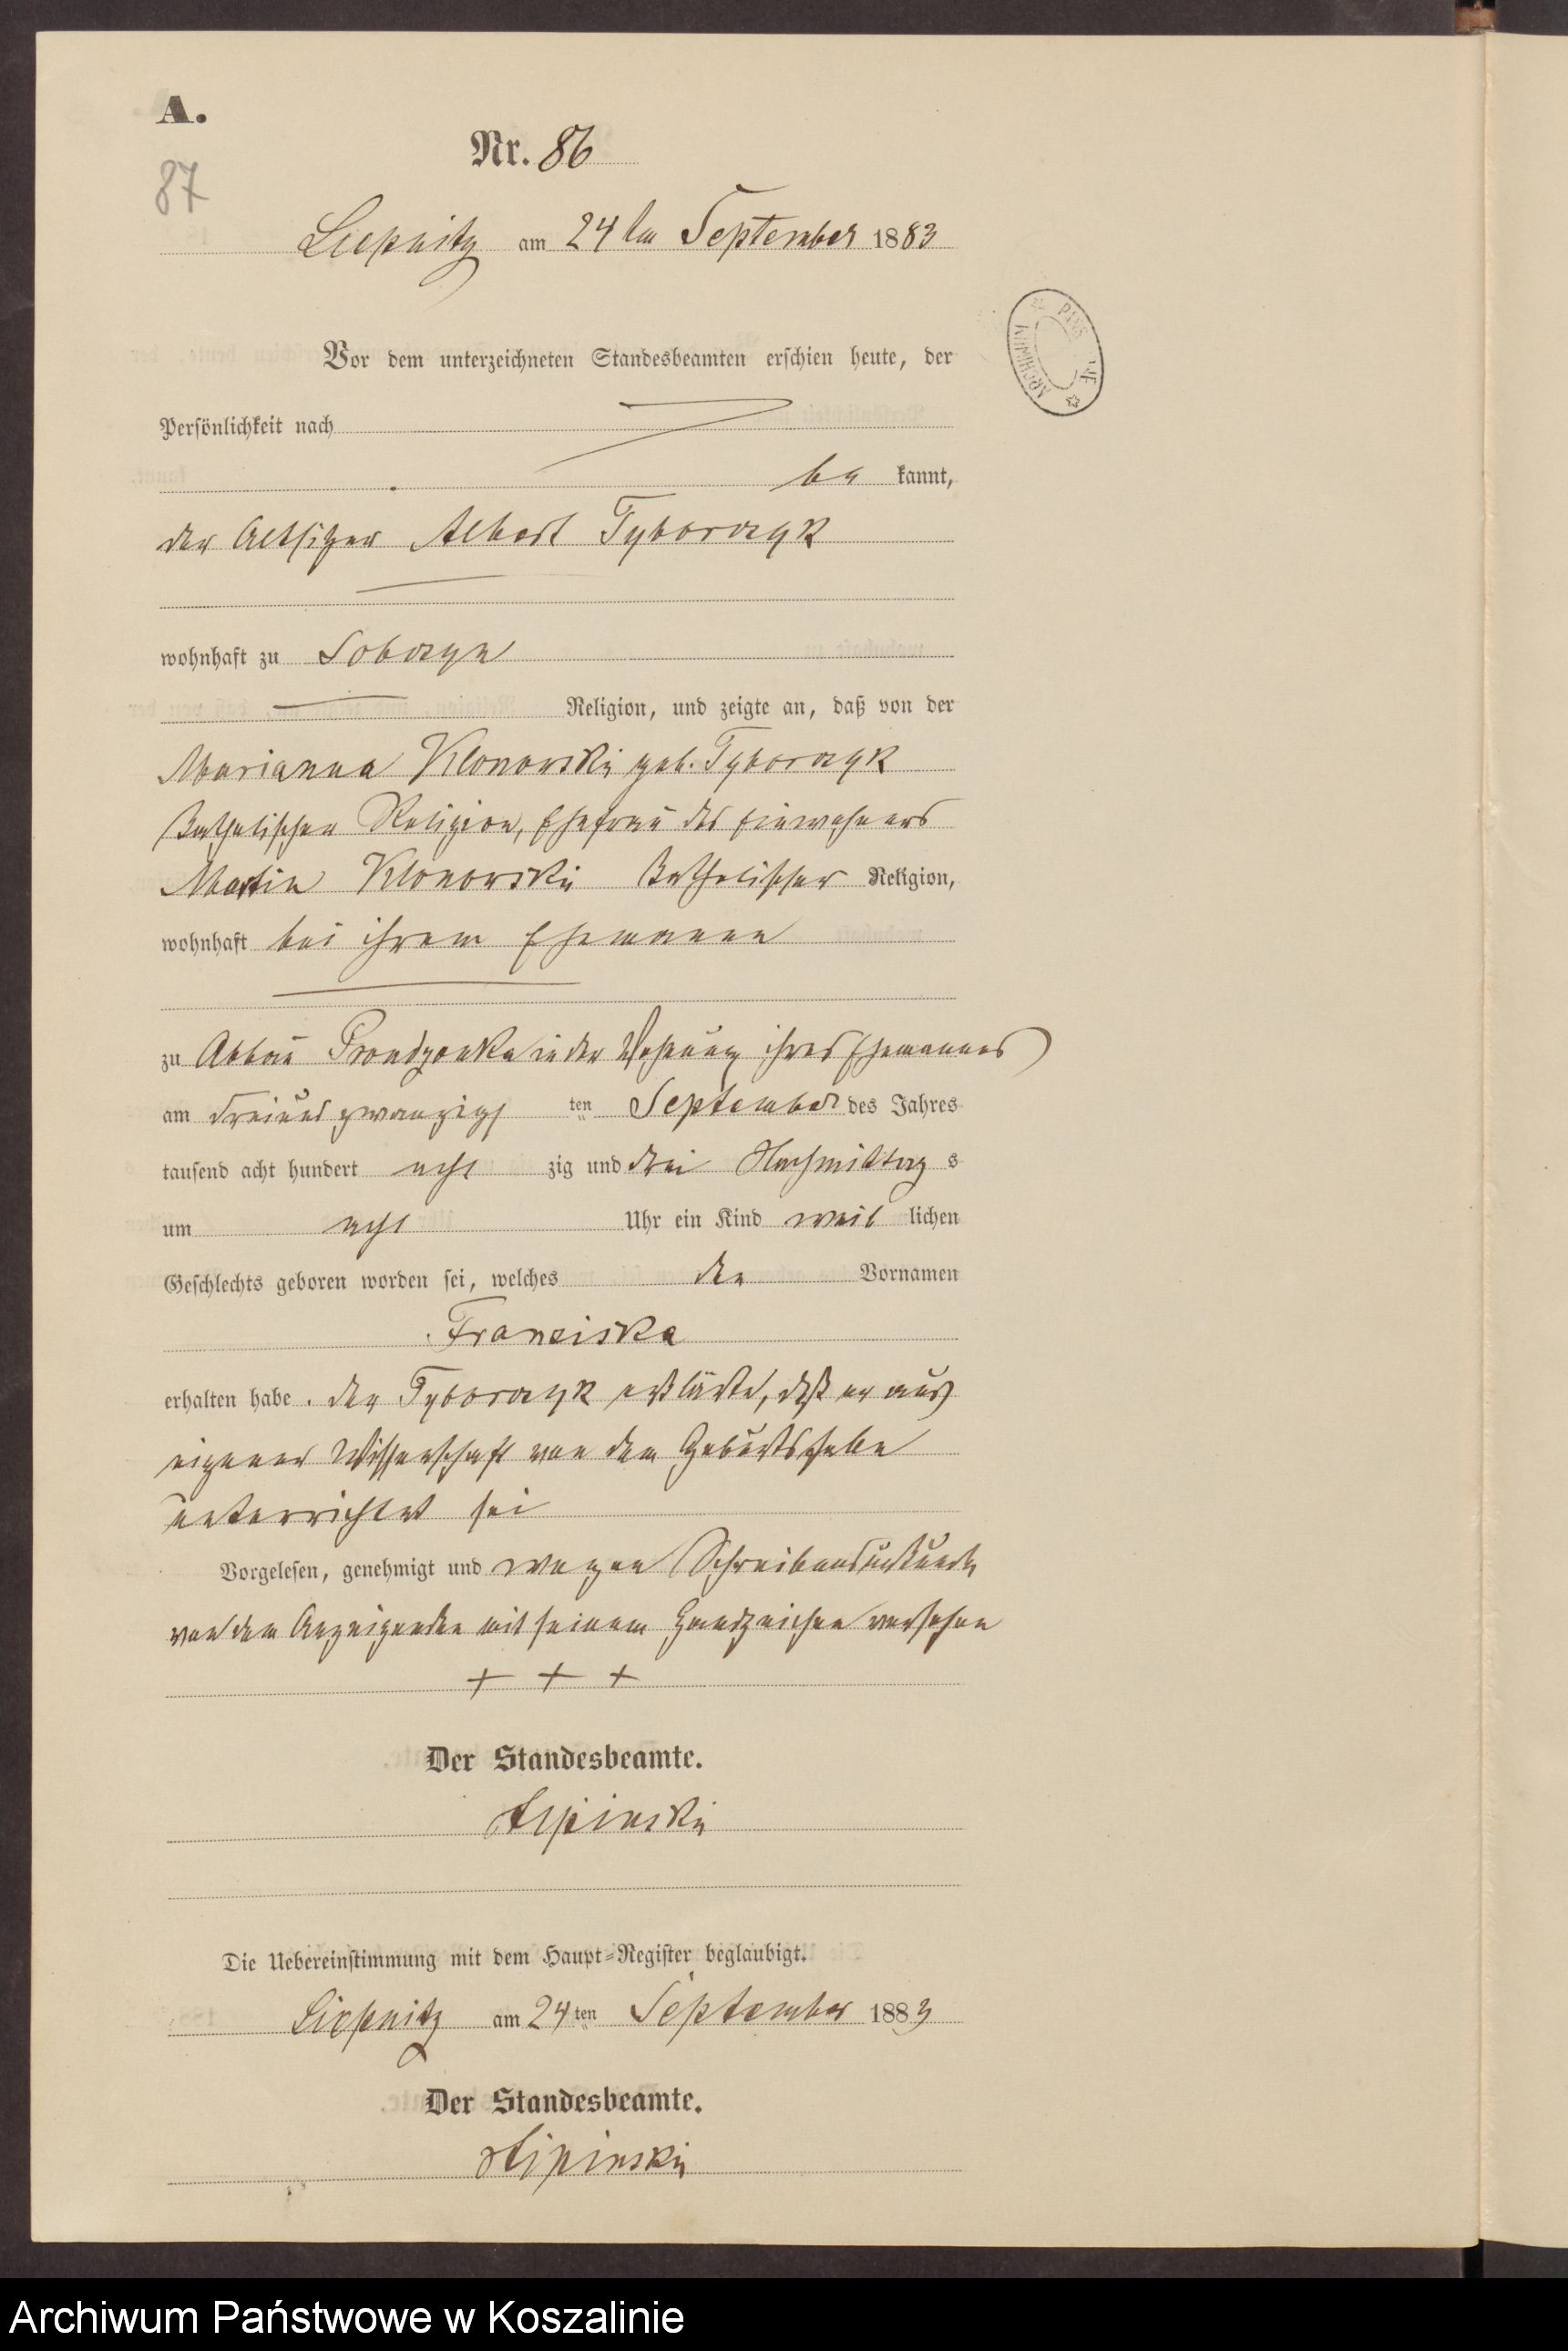 A.
Nr. 86
87
Liepnitz am 24 ten September 1883
Vor dem unterzeichneten Standesbeamten erschien heute, der
Persönlichkeit nach
be kannt,
der Altsitzer Albert Tyborczyk
wohnhaft zu Soborzyn
Religion, und zeigte an, daß von der
Marianna Klonowski geb. Tyborczyk
katholischer Religion, Ehefrau des Einwohners
Martin Klonowski katholischer Religion,
wohnhaft bei ihrem Ehemanne
zu Abbau Prondzonka in der Wohnung ihres Ehemannes
am dreiundzwanzigs ten September des Jahres
tausend acht hundert acht zig und drei Nachmittag s
um acht Uhr ein Kind weib lichen
Geschlechts geboren worden sei, welches den Vornamen
Franciska
erhalten habe. der Tyborczyk erklärte, daß er aus
eigener Wissenschaft von dem Geburtsfalle
unterrichtet sei
Vorgelesen, genehmigt und wegen Schreibensunkunde
von dem Anzeigenden mit seinem Handzeichen versehen
+ + +
Der Standesbeamte.
Lipinski
Die Uebereinstimmung mit dem Haupt-Register beglaubigt.
Liepnitz am 24 ten September 1883
Der Standesbeamte.
Lipinski
Archiwum Państwowe w Koszalinie